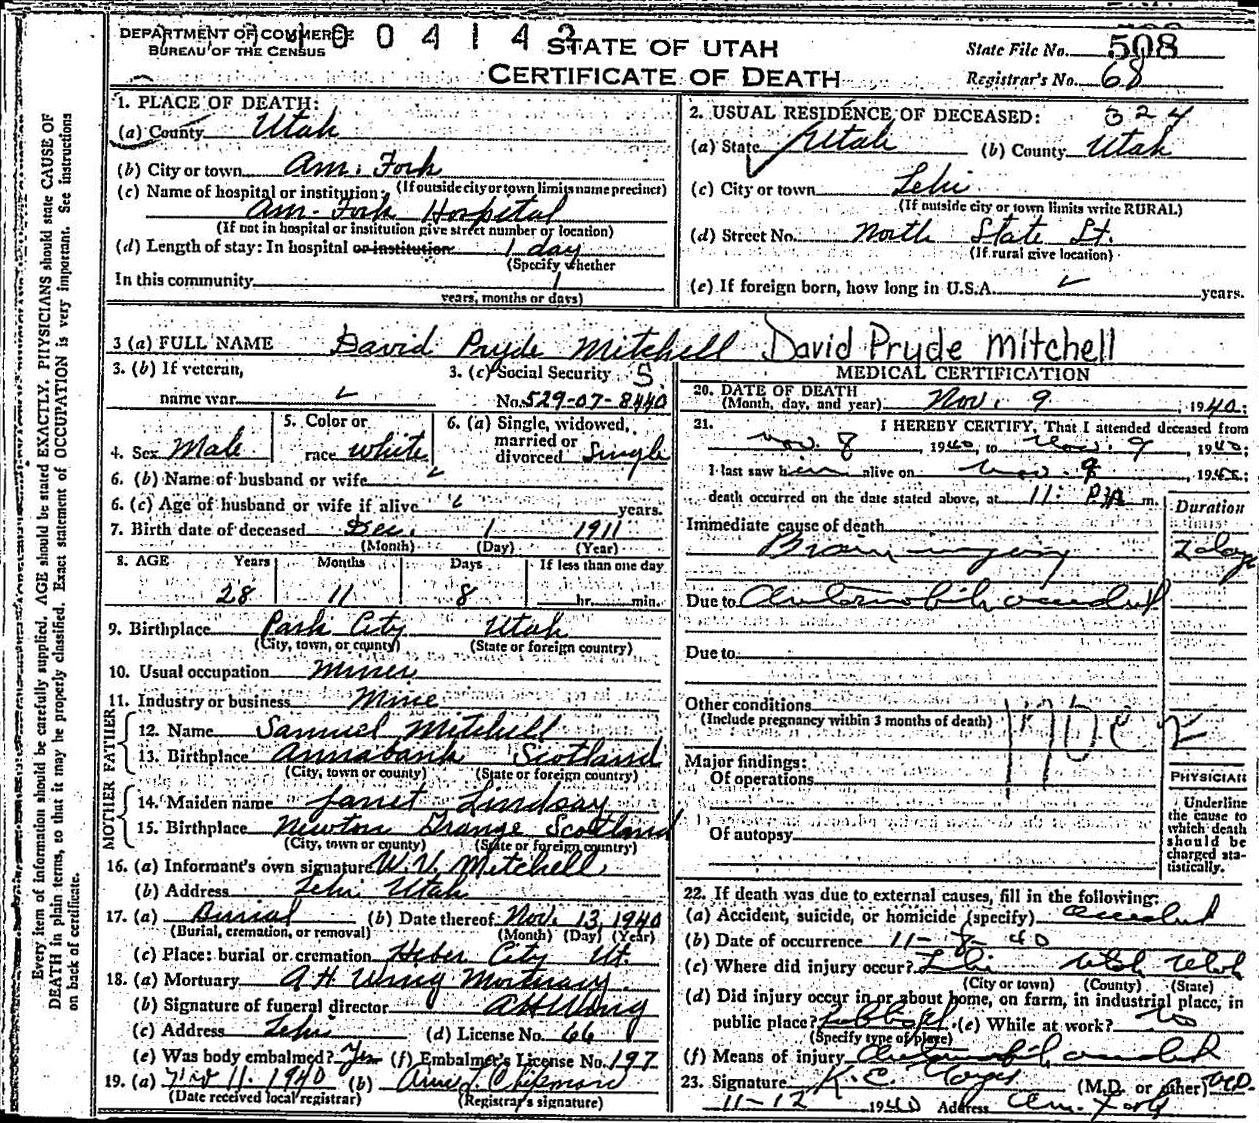 DEPARTMENT OF COMMERCE
BUREAU OF THE CENSUS
0 0 4 1 4
STATE OF UTAH
CERTIFICATE OF DEATH
State File No. 508
Registrar's No. 68
Every item of information should be carefully supplied. AGE should be stated EXACTLY. PHYSICIANS should state CAUSE OF
DEATH in plain terms, so that it may be properly classified. Exact statement of OCCUPATION is very important. See instructions
on back of certificate.
1. PLACE OF DEATH:
(a) County Utah
(b) City or town Am. Fork
(If outside city or town limits name precinct)
(c) Name of hospital or institution:
Am. Fork Hospital
(If not in hospital or institution give street number or location)
(d) Length of stay: In hospital or institution 1 day
(Specify whether
In this community 1
years, months or days)
2. USUAL RESIDENCE OF DECEASED: 324
(a) State Utah (b) County Utah
(c) City or town Lehi
(If outside city or town limits write RURAL)
(d) Street No. North State St.
(If rural give location)
(e) If foreign born, how long in U.S.A. years.
3 (a) FULL NAME David Pryde Mitchell David Pryde Mitchell
3. (b) If veteran,
name war
3. (c) Social Security S.
No. 529-07-8440
4. Sex Male
5. Color or
race white
6. (a) Single, widowed,
married or
divorced Single
6. (b) Name of husband or wife
6. (c) Age of husband or wife if alive years.
7. Birth date of deceased Dec. 1 1911
(Month) (Day) (Year)
8. AGE Years Months Days If less than one day
28 11 8 hr. min.
9. Birthplace Park City Utah
(City, town, or county) (State or foreign country)
10. Usual occupation Miner
11. Industry or business Mine
FATHER
12. Name Samuel Mitchell
13. Birthplace Annabank Scotland
(City, town or county) (State or foreign country)
MOTHER
14. Maiden name Janet Lindsay
15. Birthplace Newton Grange Scotland
(City, town or county) (State or foreign country)
16. (a) Informant's own signature W. V. Mitchell
(b) Address Lehi Utah
17. (a) Burial (b) Date thereof Nov. 13, 1940
(Burial, cremation, or removal) (Month) (Day) (Year)
(c) Place: burial or cremation Heber City Ut.
18. (a) Mortuary A H Wing Mortuary
(b) Signature of funeral director A H Wing
(c) Address Lehi (d) License No. 66
(e) Was body embalmed? Yes (f) Embalmer's License No. 197
19. (a) Nov 11. 1940 (b) Chipman
(Date received local registrar) (Registrar's signature)
MEDICAL CERTIFICATION
20. DATE OF DEATH
(Month, day, and year) Nov. 9, 1940;
21. I HEREBY CERTIFY, That I attended deceased from
Nov. 8 1940, to Nov. 9, 1940;
I last saw him alive on Nov. 9, 1940;
death occurred on the date stated above, at 11: P.M. m.
Duration
Immediate cause of death
Brain injury 2 days
Due to Automobile accident
Due to
Other conditions
(Include pregnancy within 3 months of death)
Major findings:
Of operations
Of autopsy
PHYSICIAN
Underline
the cause to
which death
should be
charged sta-
tistically.
22. If death was due to external causes, fill in the following:
(a) Accident, suicide, or homicide (specify) accident
(b) Date of occurrence 11-8-40
(c) Where did injury occur? Lehi Utah Utah
(City or town) (County) (State)
(d) Did injury occur in or about home, on farm, in industrial place, in
public place? (e) While at work? no
(Specify type of place)
(f) Means of injury Automobile accident
23. Signature K. C. (M.D. or other) M.D.
11-12 1940 Address Am. Fork